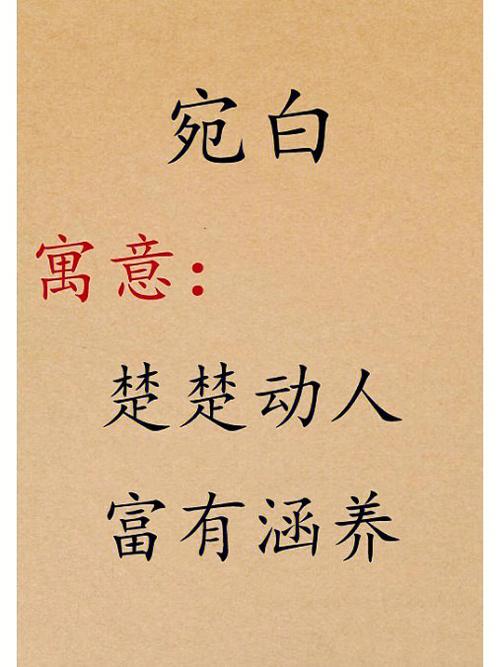 宛白
寓意：
楚楚动人
富有涵养